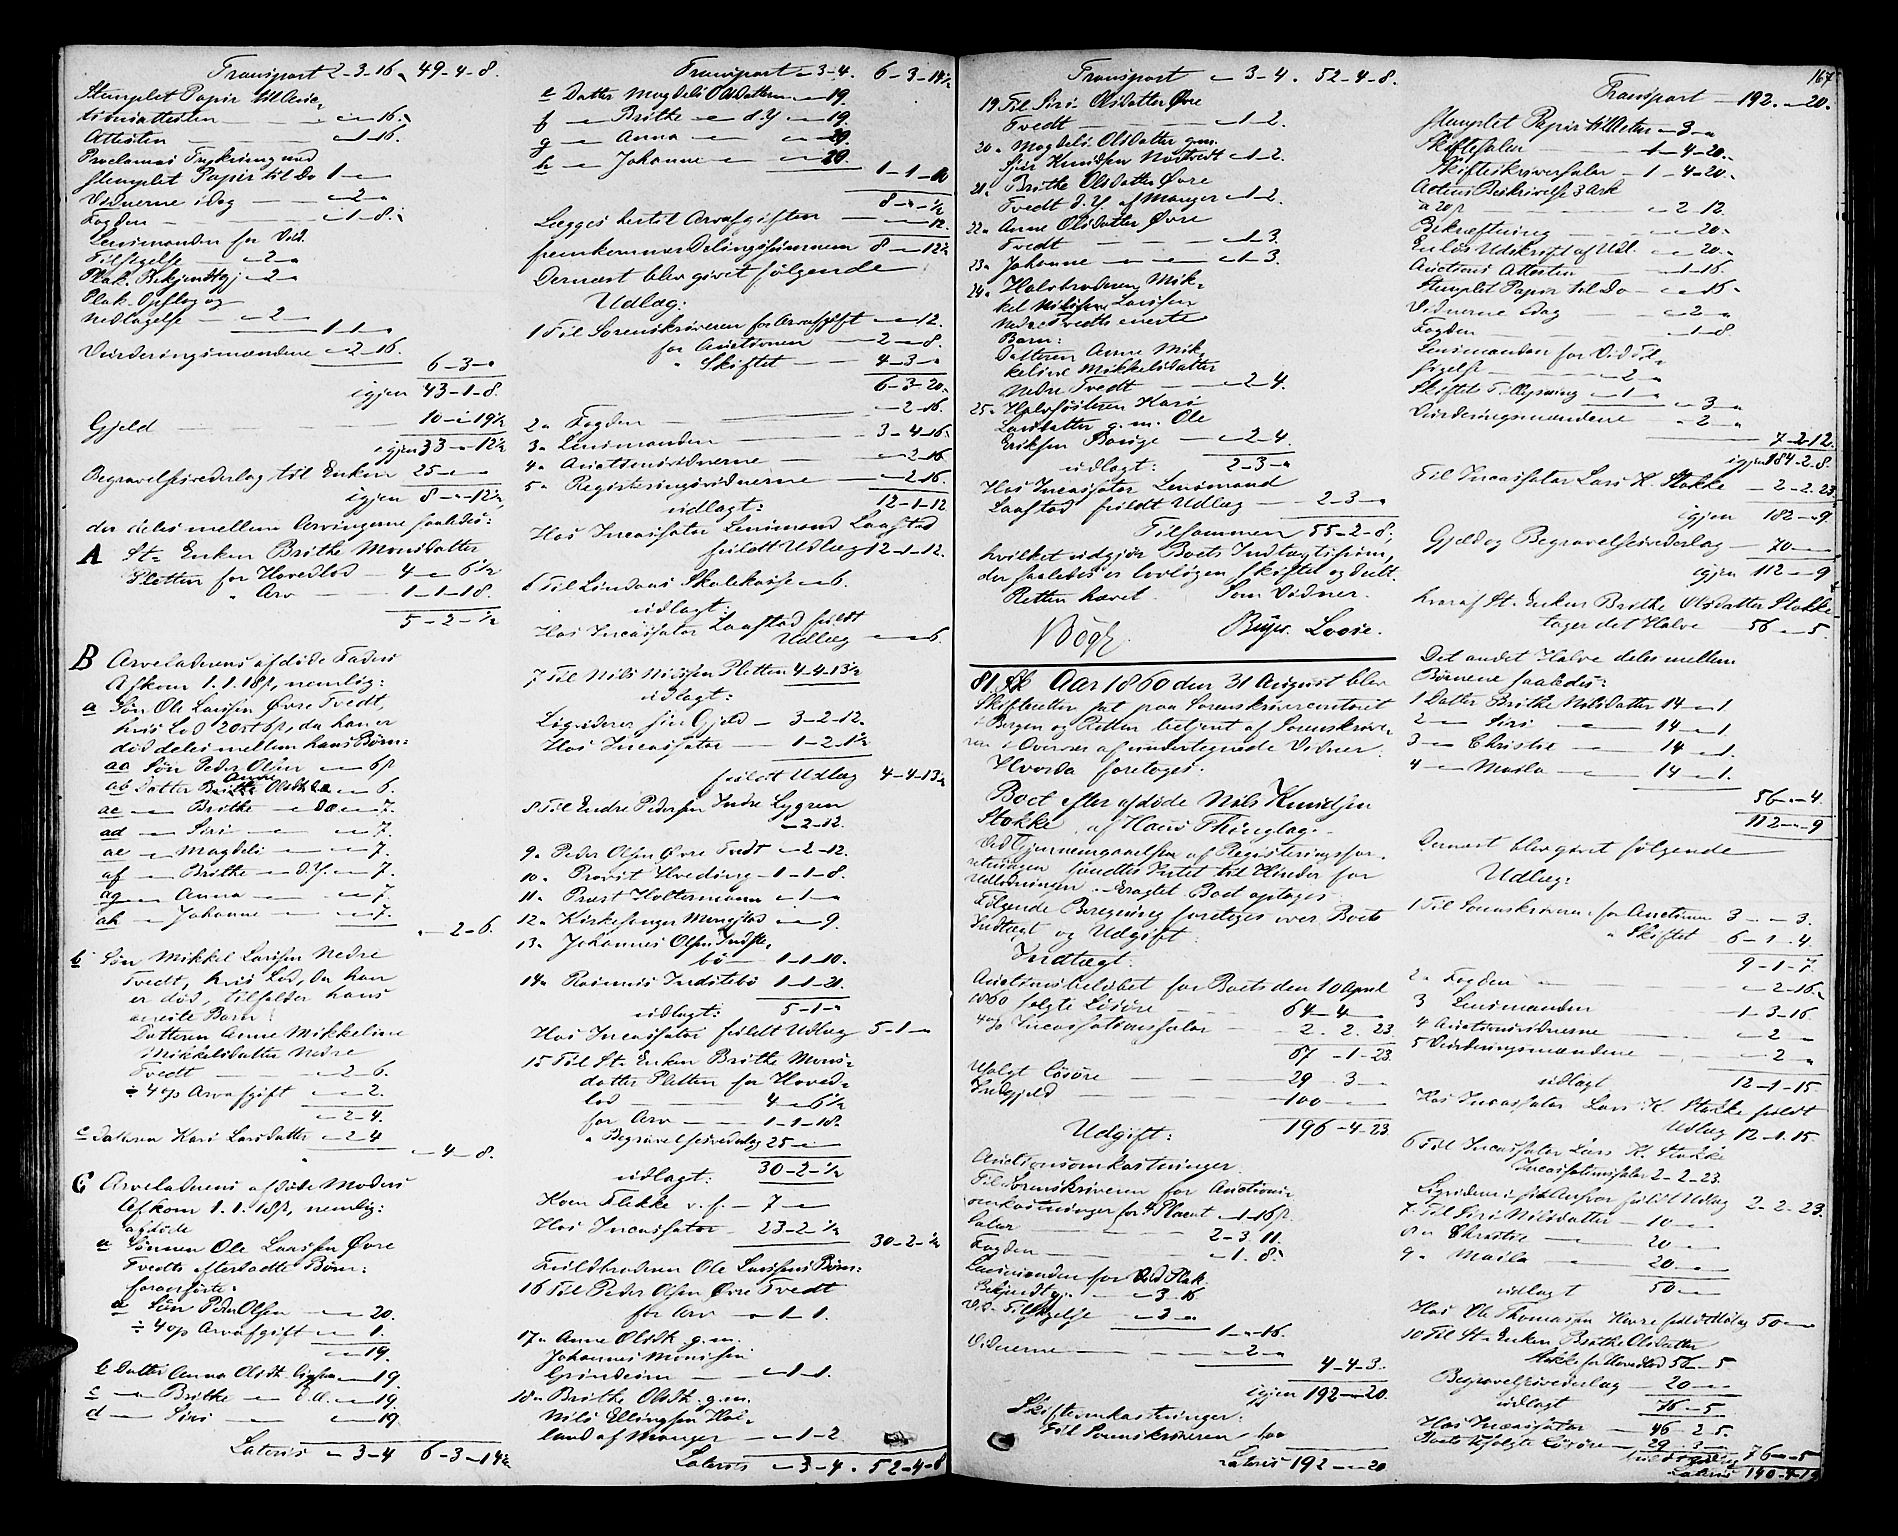 Transport 2-3-16, 49-4-8.
Stemplet Papir til Auc-
tionsattesten - - 16.
Attesten - - 1-16.
Proclamas Trykning med
stemplet Papir til Do 1 -
Vidnerne idag - 2 -
Fogden - 1-8.
Lensmanden for Vid.
Tilsigelse - 2 -
Plak. Bekjendtgj - 2 -
Plak. Opslag og
Nedtagelse - 2 -
1-1-
Vurderingsmændene - 2-16.
6-3-
igjen 43-1-8.
Gjeld 10 - 19½
igjen 33 - 12½
Begravelsesvederlag til Enken 25 -
igjen 8 - 12½,
der deles mellem Arvingerne saaledes:
A St. Enken Brithe Monsdatter
Pletten for Hovedlod - 4 - 6½
" Arv - 1-1-18.
5-2-½
B Arveladerens afdøde Faders
Afkom 1.1.18ß, nemlig:
a Søn Ole Larssen Øvre Tvedt,
hvis Lod 2 ort 6ß, da han er
død deles mellem hans Børn:
aa Søn Peder Olsen - 6ß
ab Datter Anna Olsdtr - 6.
ac - Brithe - Do - 7.
ad - Siri - 7.
ae - Magdeli - 7.
af - Brithe - d.Y. - 7.
ag - Anna - 7.
ah - Johanne - 7.
- 2-6.
b Søn Mikkel Larssen Nedre
Tvedt, hvis Lod, da han
er død, tilfalder hans
eneste Barn:
Datteren Anne Mikkeline
Mikkelsdatter Nedre
Tvedt - 2-6.
÷ 4 op Arvafgift - 2.
- 2-4.
c Datteren Kari Larsdatter - 2-4
- 4-8.
C Arveladerens afdøde Moders
Afkom 1.1.18ß, nemlig:
afdøde
a Sønnen Ole Larssen Øvre
Tvedts efterladte Børn:
foranførte:
a Søn Peder Olsen - 20.
÷ 4 op Arvafgift - 1.
- 19.
b Datter Anna Olsdtr. - 19.
c - Brithe - d.Æ. - 19.
d - Siri - 19.
Lateris - 3-4 6-3-14½
Transport - 3-4. 6-3-14½
e Datter Magdeli Olsdatter - 19.
f - Brithe - d.Y - 19.
g - Anna - 20.
h - Johanne - 20.
1-1-10
8 - ½
Lægges hertil Arvafgiften - 12.
fremkommer Delingssummen 8 - 12½
Dernæst blev givet følgende
Udlæg:
1 Til Sorenskriveren for Arvafgift - 12.
for Auctionen - 2-8.
" Skiftet - 4-3-
6-3-20.
2 " Fogden - 2-16.
3 " Lensmanden - 3-4-16.
4 " Auctionsvidnerne - 2-16
5 " Registeringsvidnerne - 2-16.
udlagt: 12-1-12
Hos Incassator Lensmand Laastad
fuldt Udlæg 12-1-12.
6 Til Lindaas Skolekasse - 6.
udlagt:
Hos Incassator Laastad fuldt
Udlæg - 6.
7 Til Nils Nilssen Pletten 4-4-13½
udlagt:
Liqviderer sin Gjeld - 3-2-12.
Hos Incassator - 1-2-1½
fuldt Udlæg 4-4-13½
8 Til Endre Pedersen Indre Lygren
- 2-12.
9 " Peder Olsen Øvre Tvedt - 2-12.
10 " Provst Hveding - 1-1-8.
11 " Præst Holtermann - 1 -
12 " Kirkesanger Mongstad - 9.
13 " Johannes Olsen Indste-
bø - 1-1-10.
14 " Rasmus Indstebø 1-1-21.
udlagt: 5-1-
Hos Incassator fuldt Udlæg 5-1-
15 Til St. Enken Brithe Mons-
datter Pletten for Hoved-
lod - 4 - 6½
for Arv - 1-1-18.
" Begravelsesvederlag 25 -
udlagt: 30-2-½
Koen Flekke v.f. - 7 -
Hos Incassator - 23-2-½
30-2-½
Fuldbroderen Ole Larssens Børn:
16 Til Peder Olsen Øvre Tvedt
for Arv - 1-1.
17 " Anne Olsdtr. g.m.
Johannes Monssen
Grindeim - 1-1.
18 " Brithe Olsdtr. g.m.
Nils Ellingsen Hol-
land af Manger - 1-2
Lateris - 3-4. 52-4-8
Transport - 3-4. 52-4-8.
19 Til Siri Olsdatter Øvre
Tvedt - 1-2.
20 " Magdeli Olsdatter g.m.
Siur Knudsen Nortvedt - 1-2.
21 " Brithe Olsdatter Øvre
Tvedt d.Y. af Manger - 1-2.
22 " Anne Olsdatter Øvre
Tvedt - 1-3.
23 " Johanne - 1-3.
24 " Halvbroderen Mik-
kel Larssen
Nedre Tvedts eneste
Barn:
Datteren Anne Mik-
keline Mikkelsdatter
Nedre Tvedt - 2-4.
25 " Halvsøsteren Kari
Larsdatter g.m. Ole
Eriksen Bauge - 2-4.
udlagt: 2-3-
Hos Incassator Lensmand
Laastad fuldt Udlæg - 2-3-
Tilsammen 55-2-8,
hvilket udgjør Boets Indtægtssum,
der saaledes er lovligen skiftet og delt.
Retten hævet. Som Vidner.
Bøgh Beyer. Loose.
81. Aar 1860 den 31 August blev
Skifteret sat paa Sorenskrivercontoret
i Bergen og Retten betjent af Sorenskrive-
ren i Overvær af undertegnede Vidner.
Hvorda foretoges.
Boet efter afdøde Nils Knudsen
Stokke af Haus Thinglag.
Ved Gjennemgaaelsen af Registeringsfor-
retningen fandtes Intet til Hinder for
Udlodningen. Eragtet Boet optages.
Følgende Beregning foretoges over Boets
Indtægt og Udgift:
Indtægt.
Auctionsbeløbet for Boets den 10 April
1860 solgte Løsøre - 64-4-
4 op Incassationssalær - 2.2.23
67-1-23.
Usolgt Løsøre - 29.3-
Indgjeld - 100 -
Udgift: 196-4-23.
Auctionsomkostninger.
Til Sorenskriveren for Auctions-
omkostninger for Placat - 1-16ß.
Salær - 2-3.11.
Fogden - 1.8.
Lensmanden for Vid Plak.
Bekjendtgj. - 3.16
V.d. Tilsigelse - 2 -
1 - 16.
Vidnerne - 2 -
4-4-3.
igjen 192 - 20.
Skifteomkostninger:
Til Sorenskriveren for
Lateris 192 - 20
167
Transport - 192 - 20.
Stemplet Papir til Acten - 3 -
Skiftesalær - 1-4-20.
Skifteskriversalær - 1-4-20.
Actens Beskrivelse 3 Ark
a 20ß - 2-12.
Bekræftning - 20.
Enkes Udskrift af Udl. - 20.
Auctions Attesten - 1-16.
Stemplet Papir til Do - 16.
Vidnerne idag - 2 -
Fogden - 1-8
Lensmanden for Vid Til-
sigelse - 2 -
Skiftets T.lysning - 1 -
- 3 -
Vurderingsmændene - 2 -
7-2-12.
igjen 184-2-8.
Til Incassator Lars K. Stokke - 2-2.23
igjen 182 - 9.
Gjæld og Begravelsesvederlag - 70 -
igjen 112 - 9
hvoraf St. Enken Brithe Olsdatter Stokke
tager det Halve - 56 - 5
Det andet Halve deles mellem
Børnene saaledes:
1 Datter Brithe Nilsdatter 14 - 1
2 - Siri - 14 - 1
3 - Christie - 14 - 1.
4 - Marta - 14 - 1.
56 - 4.
112 - 9
Dernæst blev givet følgende
Udlæg:
1 Til Sorenskriveren for Auctionen 3 - 3.
" Skiftet - 6-1.4.
9-1-7.
2 " Fogden - 2-16.
3 Lensmanden - 1-3-16
4 Auctionsvidnerne - 2 -
5 Vurderingsmændene - 2 -
udlagt 12-1-15
Hos Incassator Lars K. Stokke fuldt
Udlæg 12-1.15.
6 Til Incassator Lars K. Stokke
Incassationssalær 2-2.23.
Liqvideres i sit Ansvar fuldt Udlæg 2-2.23.
7 Til Siri Nilsdatter - 10 -
8 " Christie - 20 -
9 " Marta - 20 -
udlagt 50 -
Hos Ole Thomassen Havre fuldt Udlæg 50 -
10 Til St. Enken Brithe Olsdatter
Stokke for Hovedlod 56 - 5
Begravelsesvederlag - 20 -
udlagt 76 - 5
Hos Incassator - 46 2.5.
Boets usolgte Løsøre - 29.3 -
fuldt Udlæg 76 - 5
Lateris 140-4-19